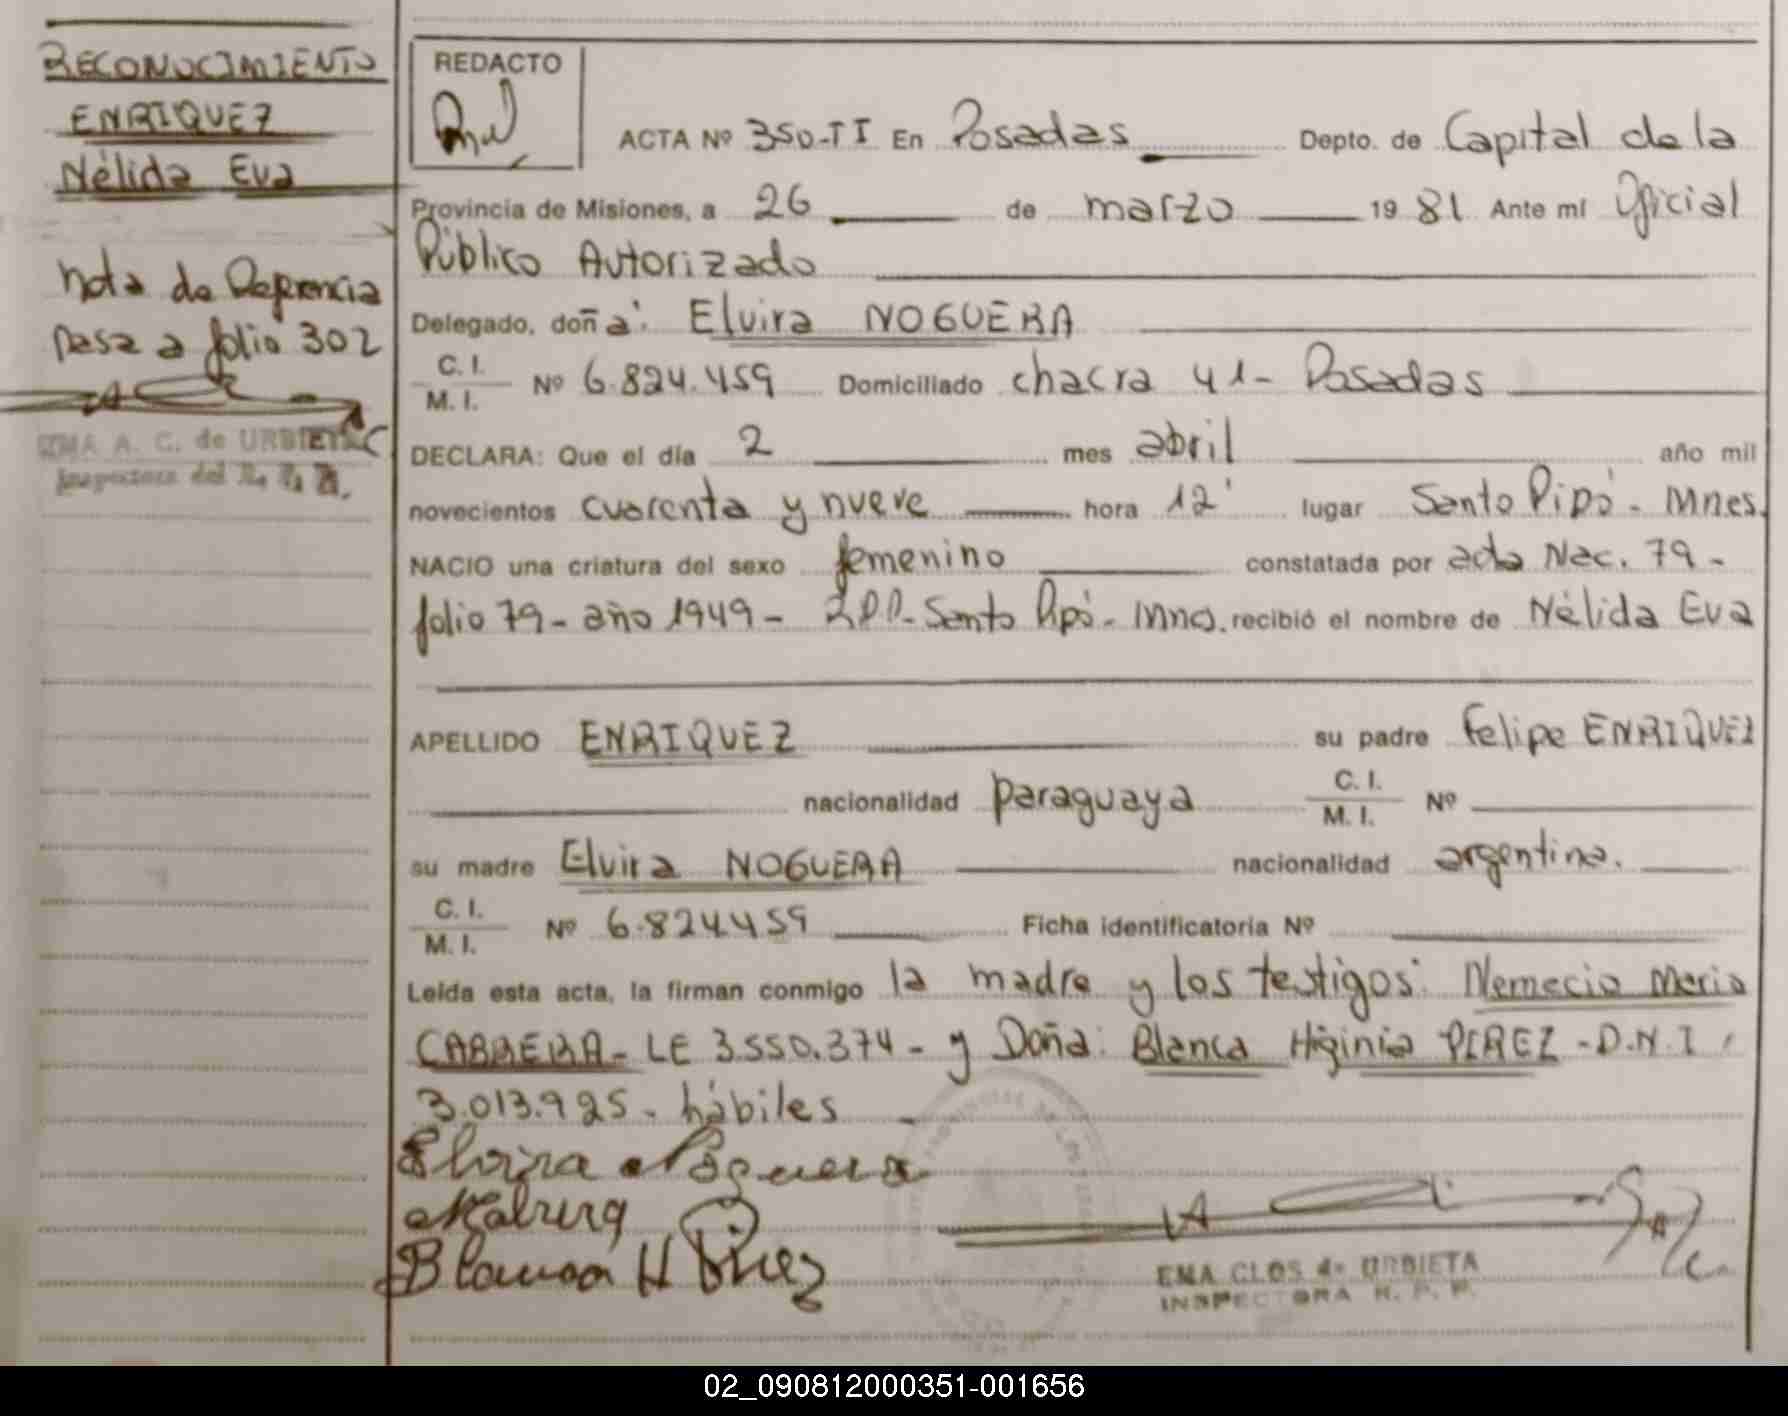 RECONOCIMIENTO
ENRIQUEZ
Nélida Eva
Nota de Referencia
pasa a folio 302
EMA A. C. de URBIETA
Inspectora del R. P. P.
REDACTO
ACTA Nº 350-TI En Posadas Depto. de Capital de la
Provincia de Misiones, a 26 de marzo 19 81 Ante mí Oficial
Público Autorizado
Delegado, doña: Elvira NOGUERA
C. I.
M. I. Nº 6.824.459 Domiciliado chacra 41- Posadas
DECLARA: Que el día 2 mes abril año mil
novecientos cuarenta y nueve hora 12' lugar Santo Pipó - Mnes.
NACIO una criatura del sexo femenino constatada por acta Nac. 79-
folio 79- año 1949- RPP- Santo Pipó- Mnes. recibió el nombre de Nélida Eva
APELLIDO ENRIQUEZ su padre Felipe ENRIQUEZ
nacionalidad paraguaya C. I.
M. I. Nº
su madre Elvira NOGUERA nacionalidad argentina.
C. I.
M. I. Nº 6.824.459 Ficha identificatoria Nº
Leída esta acta, la firman conmigo la madre y los testigos: Nemecio Mario
CABRERA- LE 3.550.374- y Doña: Blanca Higinia PEREZ -D.N.I.
3.013.925- hábiles
Elvira Noguera
Blanca H Pérez
EMA CLOS de URBIETA
INSPECTORA R. P. P.
02_090812000351-001656